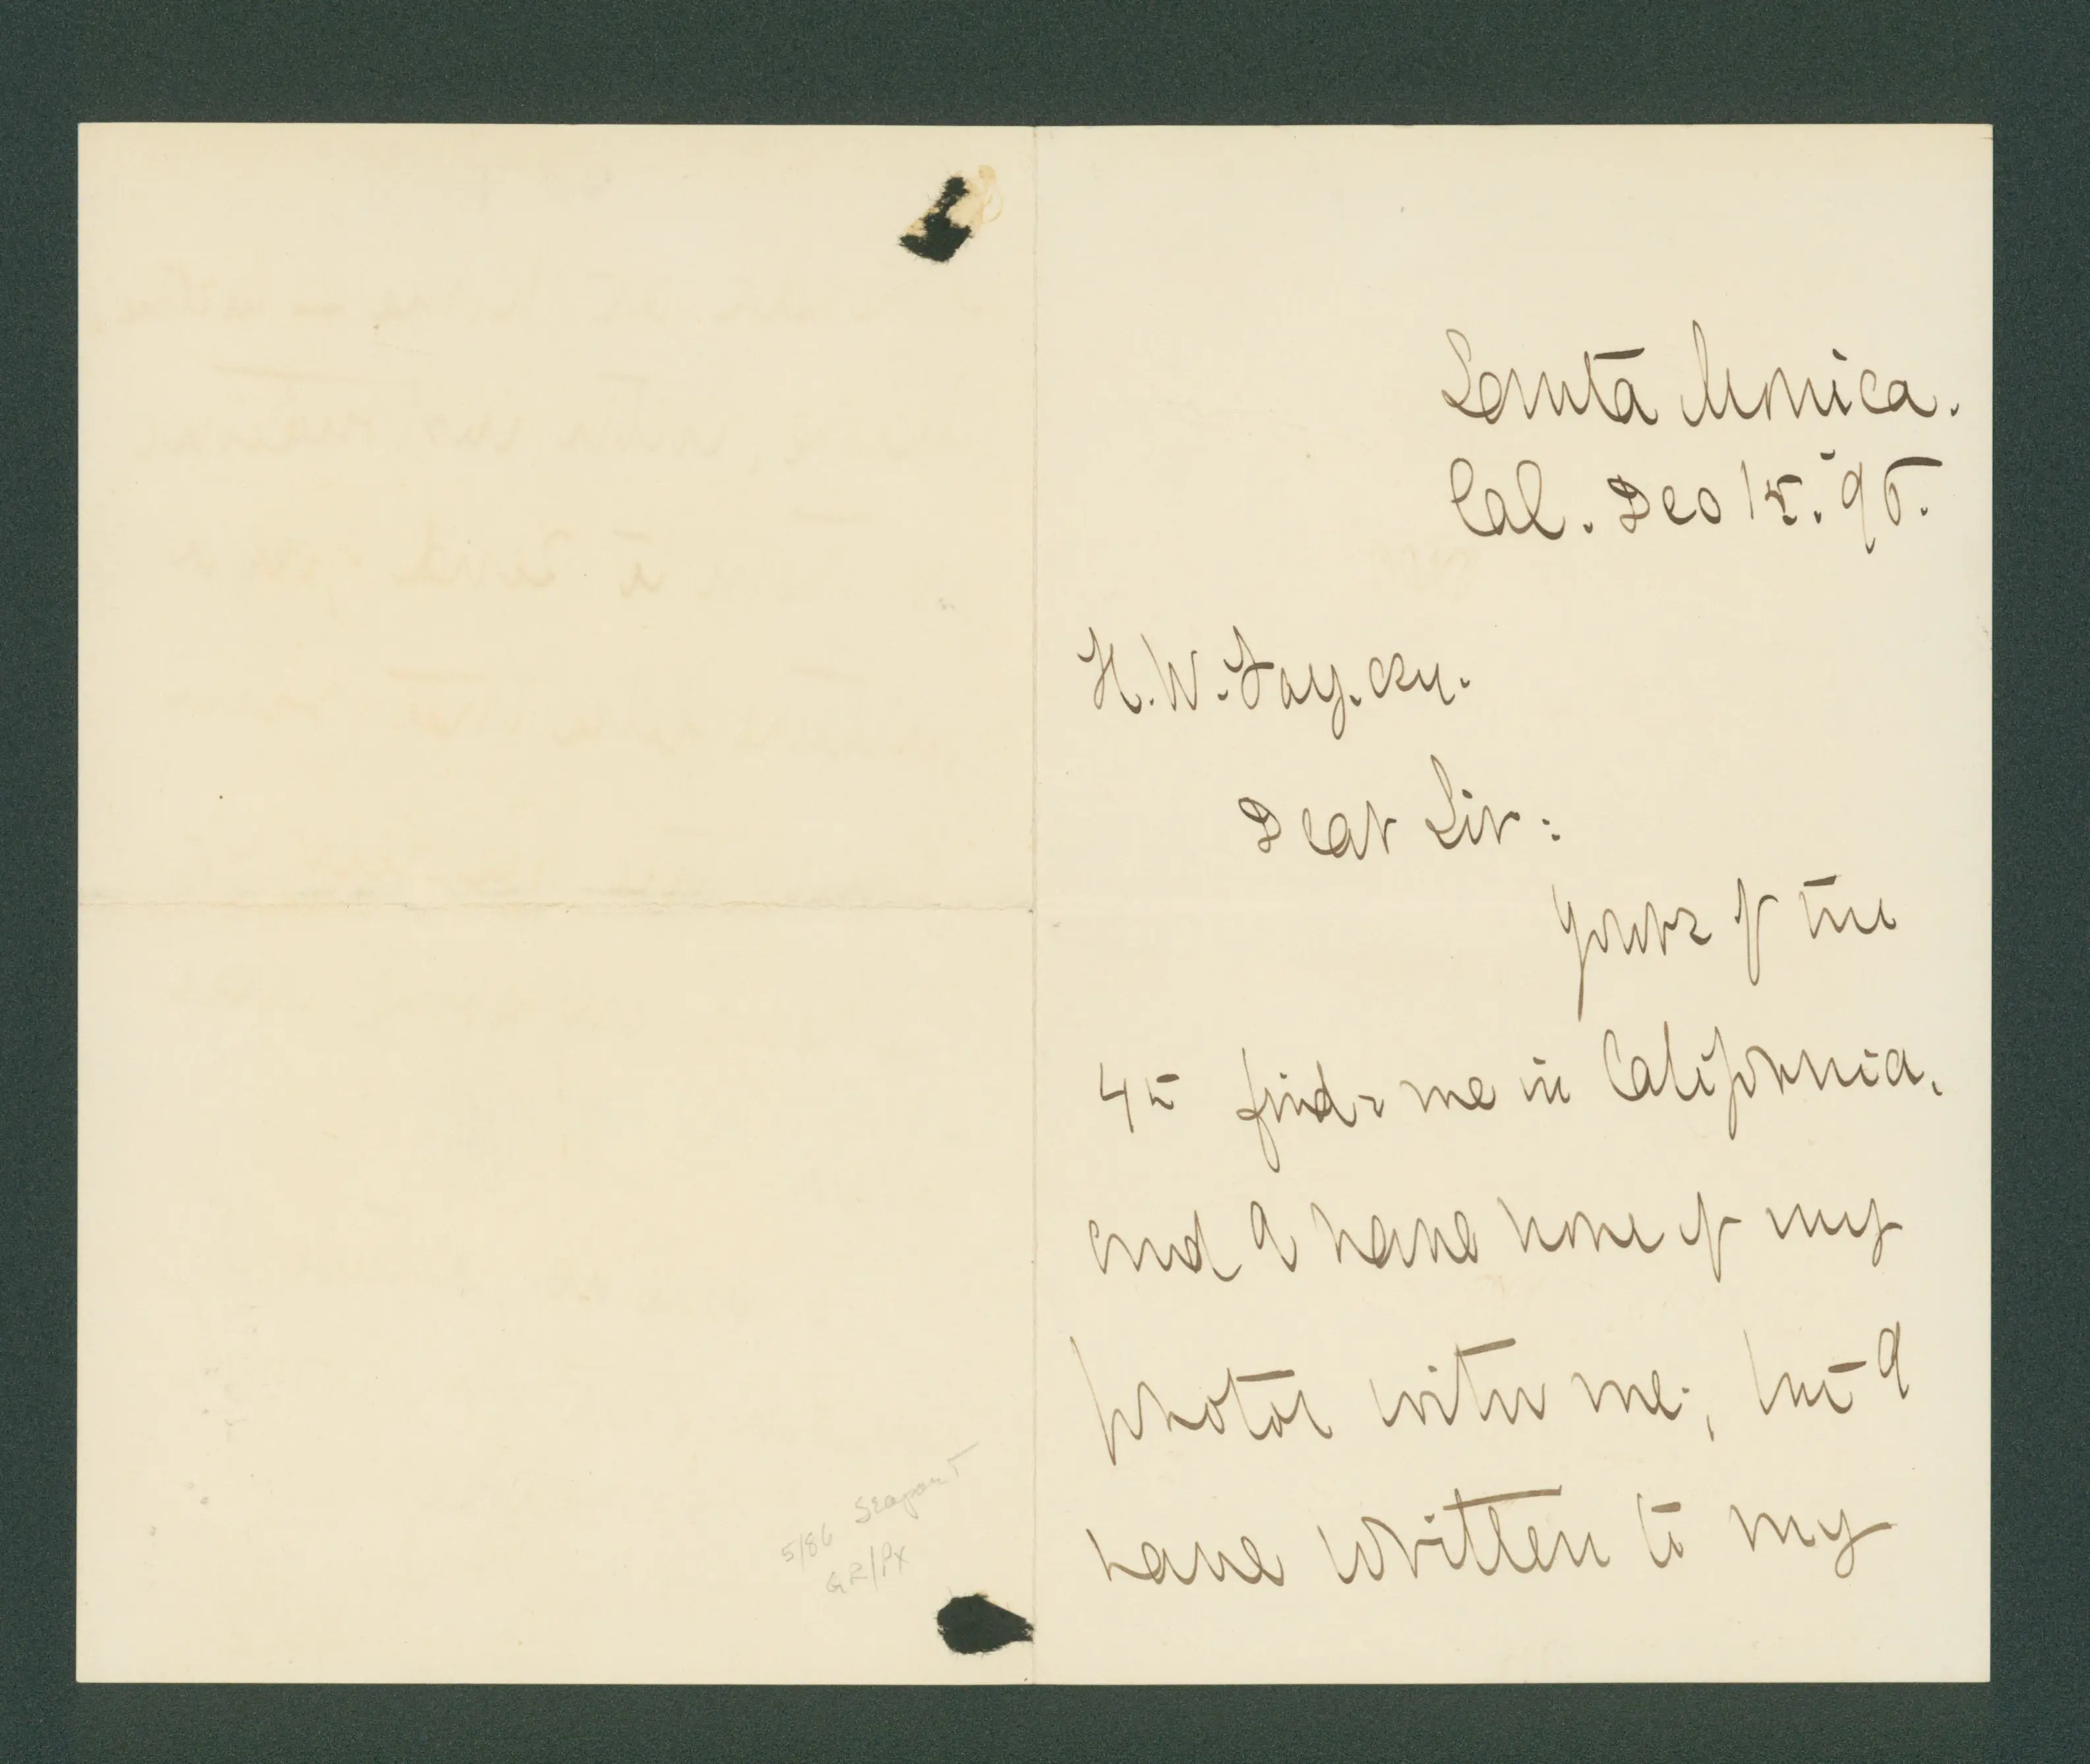 Santa Monica.
Cal. Dec 15. '95.
H. W. Fay. Esq.
Dear Sir:
Yours of the
4th finds me in California.
and I have none of my
photos with me; but I
have written to my
Seaport
5/86
GR/PX